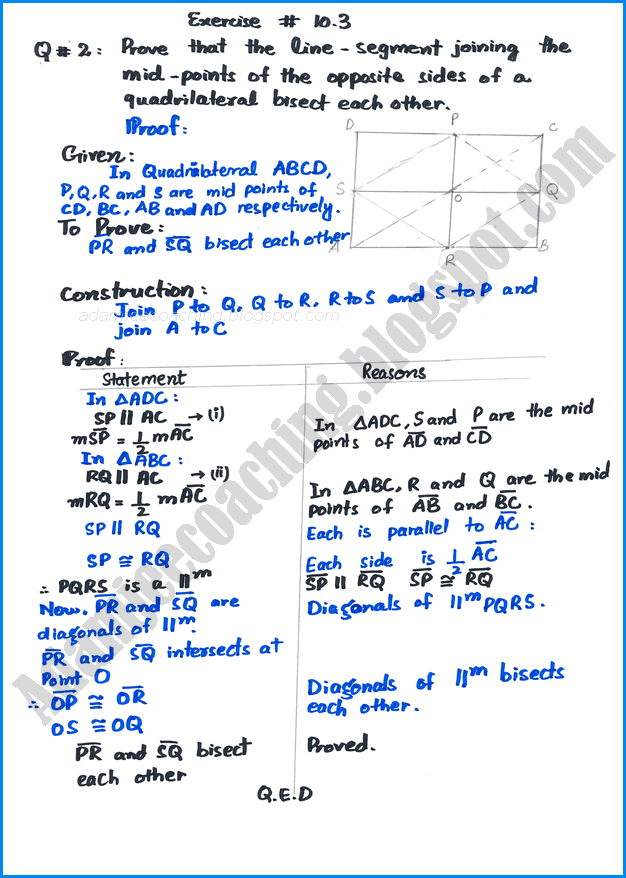 Exercise # 10.3
Q # 2: Prove that the line-segment joining the
mid-points of the opposite sides of a
quadrilateral bisect each other.
Proof:
D P C
S O Q
A R B
Given:
In Quadrilaterral ABCD,
P,Q,R and S are mid points of
CD, BC, AB and AD respectively.
To Prove:
PR and SQ bisect each other
Construction:
Join P to Q, Q to R, R to S and S to P and
join A to C
adamjeecoaching.blogspot.com
Proof:
Statement Reasons
In △ADC:
SP || AC → (i)
mSP = 1/2 mAC
In △ADC, S and P are the mid
points of AD and CD
In △ABC:
RQ || AC → (ii)
mRQ = 1/2 mAC
In △ABC, R and Q are the mid
points of AB and BC.
SP || RQ Each is parallel to AC:
SP ≅ RQ Each side is 1/2 AC
∴ PQRS is a ||m SP || RQ SP ≅ RQ
Now, PR and SQ are Diagonals of ||m PQRS.
diagonals of ||m.
PR and SQ intersects at
Point O
∴ OP ≅ OR Diagonals of ||m bisects
OS ≅ OQ each other.
PR and SQ bisect Proved.
each other
Q.E.D
Adamjeecoaching.blogspot.com